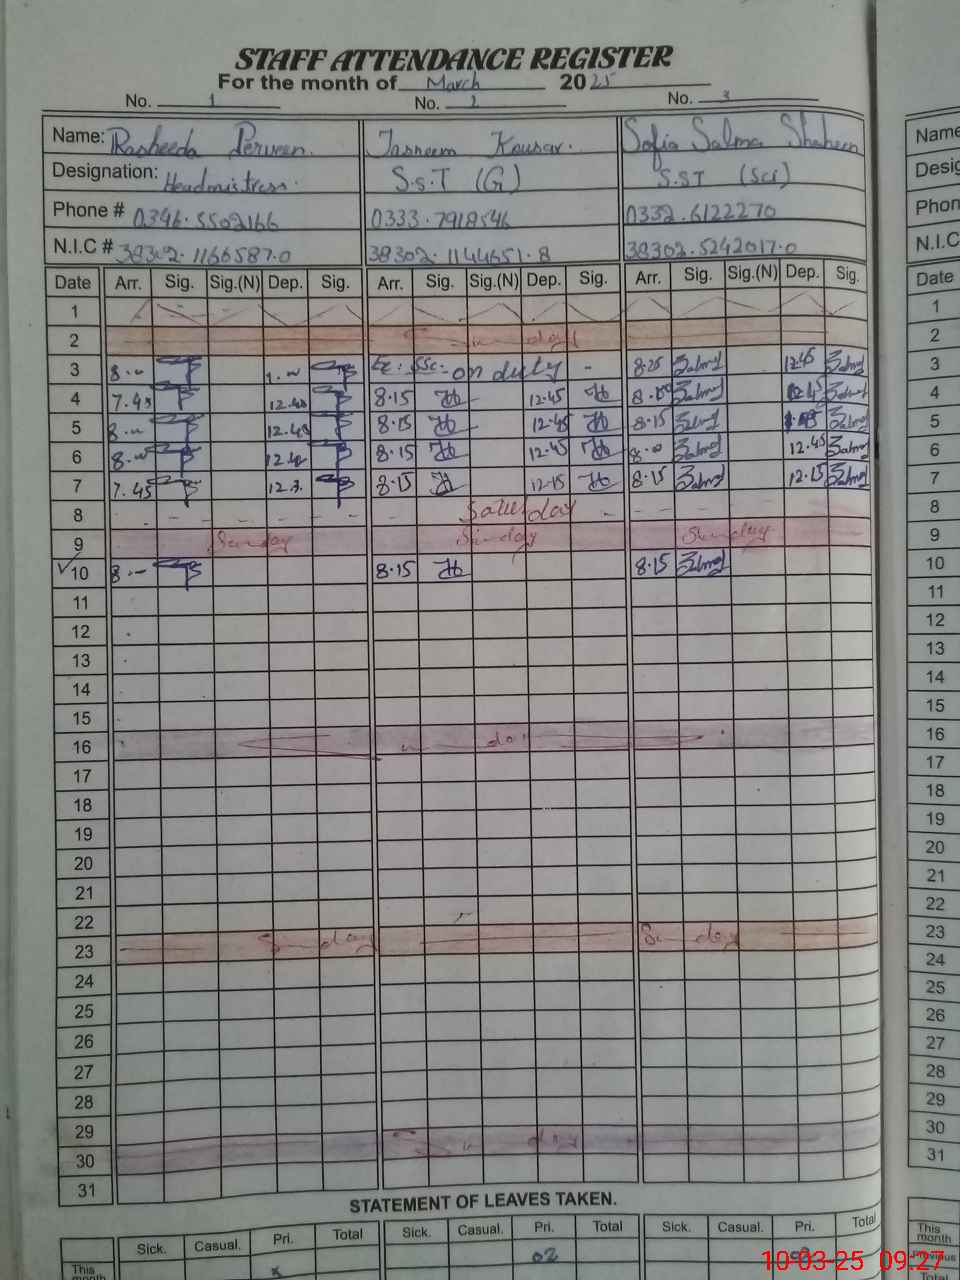 STAFF ATTENDANCE REGISTER
For the month of March 2025
No. 1 No. 2 No. 3
Name: Rasheeda Perveen. Tasneem Kousar. Sofia Salma Shaheen Name
Designation: Headmistress. S.S.T (G) S.ST (Sci) Desig
Phone # 0346.5502166 0333.7918546 0332.6122270 Phon
N.I.C # 38302.1166587.0 38302.1144651.8 38302.5242017.0 N.I.C
Date Arr. Sig. Sig.(N) Dep. Sig. Arr. Sig. Sig.(N) Dep. Sig. Arr. Sig. Sig.(N) Dep. Sig. Date
1 1
2 Sunday 2
3 8.- on duty - 8.25 Salma 12.45 Salma 3
4 7.45 12.40 8.15 12.45 Salma Salma 4
5 8.- 12.45 8.15 12.45 8.15 Salma Salma 5
6 8.- 8.15 12.45 Salma 12.45 Salma 6
7 7.45 12.3 8.15 12.15 8.15 Salma 12.15 Salma 7
8 Saturday 8
9 Sunday Sunday Sunday 9
10 8.- 8.15 8.15 Salma 10
11 11
12 12
13 13
14 14
15 15
16 16
17 17
18 18
19 19
20 20
21 21
22 22
23 Sunday Sunday 23
24 24
25 25
26 26
27 27
28 28
29 29
30 Sunday 30
31 31
STATEMENT OF LEAVES TAKEN.
Sick. Casual. Pri. Total Sick. Casual. Pri. Total Sick. Casual. Pri. Total This month
This month x 02 Previous
Total
10-03-25 09:27